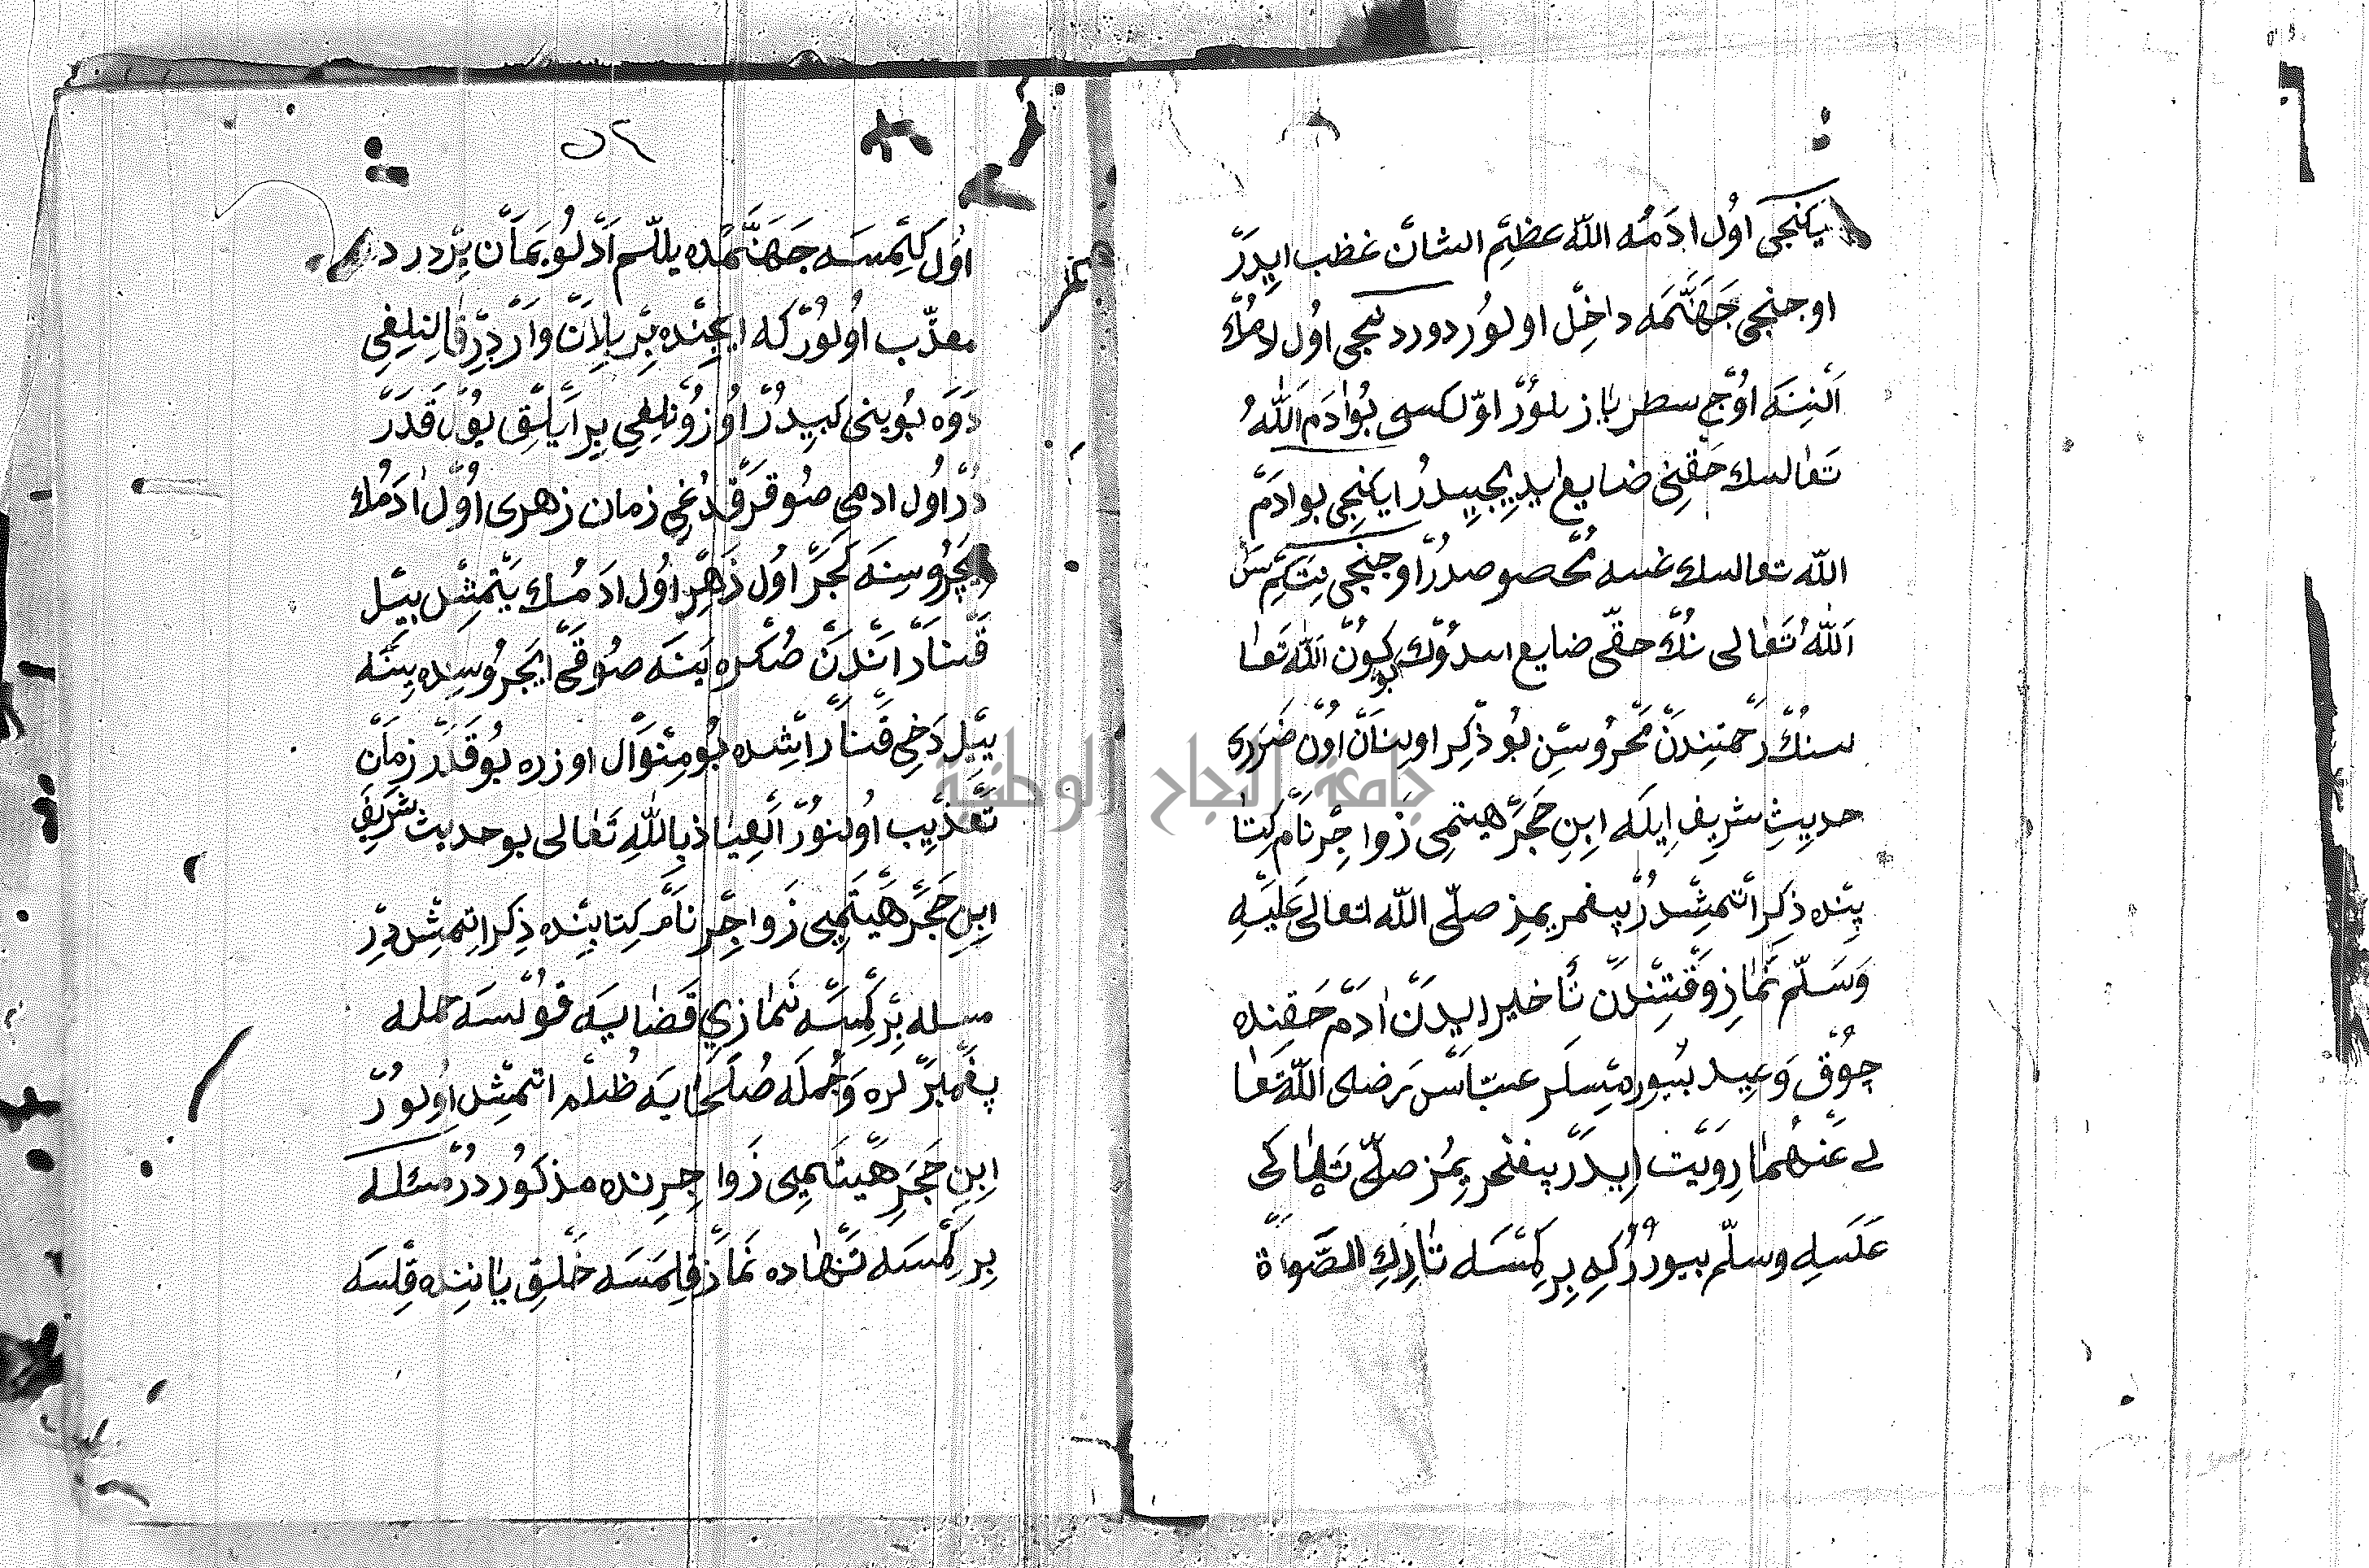 يكنجى اول ادمه الله عظيم الشان غظب ايدر
اوجنجى جهنمه داخل اولور دوردنجى اول ادمك
النينه اوچ سطر يازلور اول كسى بو ادم الله
تعالىنك حقنى ضايع ايديجيدر ايكنجى بو ادم
الله تعالىنك غىىنه مخصوصدر اوجنجى نتكم سن
الله تعالى نك حقى ضايع ايىدوك بوكون الله تعا
لىىنك رحمتىندن محروسن بو ذكر اولىنان اون ضررى
حديث شريف ايله ابن حجر هيتمى زواجر نام كتا
بنده ذكر اتمشدر پيغمبريمز صلى الله تعالى عليه
وسلم نماز وقتىندن تأخير ايدن ادم حقنده
چوق وعيد بيورمشلر عباس رضى الله تعا
لى عنهما رويت ايدر پيغمبريمز صلى تعالى
عليه وسلم بيورر كه بر كمسه تارك الصواة
٥٢
اول كمسه جهنمده يللم ادلو يمان يردر د
معذب اولور كه ايچنده بر يلان واردر قالنلغى
دوه بوينى كبيدر اوزونلغى بر ايلق يول قدر
در اول ادمى صوقردقدغى زمان زهرى اول ادمك
ايچروسنه كچر اول زهر اول ادمك يتمش ييل
قىنار اندن صكره ينه صوقر ايچروسنده ينه
ييل دخى قىنار اشده بو منوال اوزره بو قدر زمان
تعذيب اولنور العياذ بالله تعالى بو حديث شريف
ابن حجر هيتمى زواجر نام كتابنده ذكر اتمشدر
مسله بر كمسه نمازى قضايه قولسه جمله
پغمبرلره وجمله صلحايه ظلم اتمش اولور
ابن حجر هيتمى زواجرنده مذكوردر مسئله
بر كمسه تنهاده نماز قلمسه خلق ياننده قلسه
جامعة النجاح الوطنية